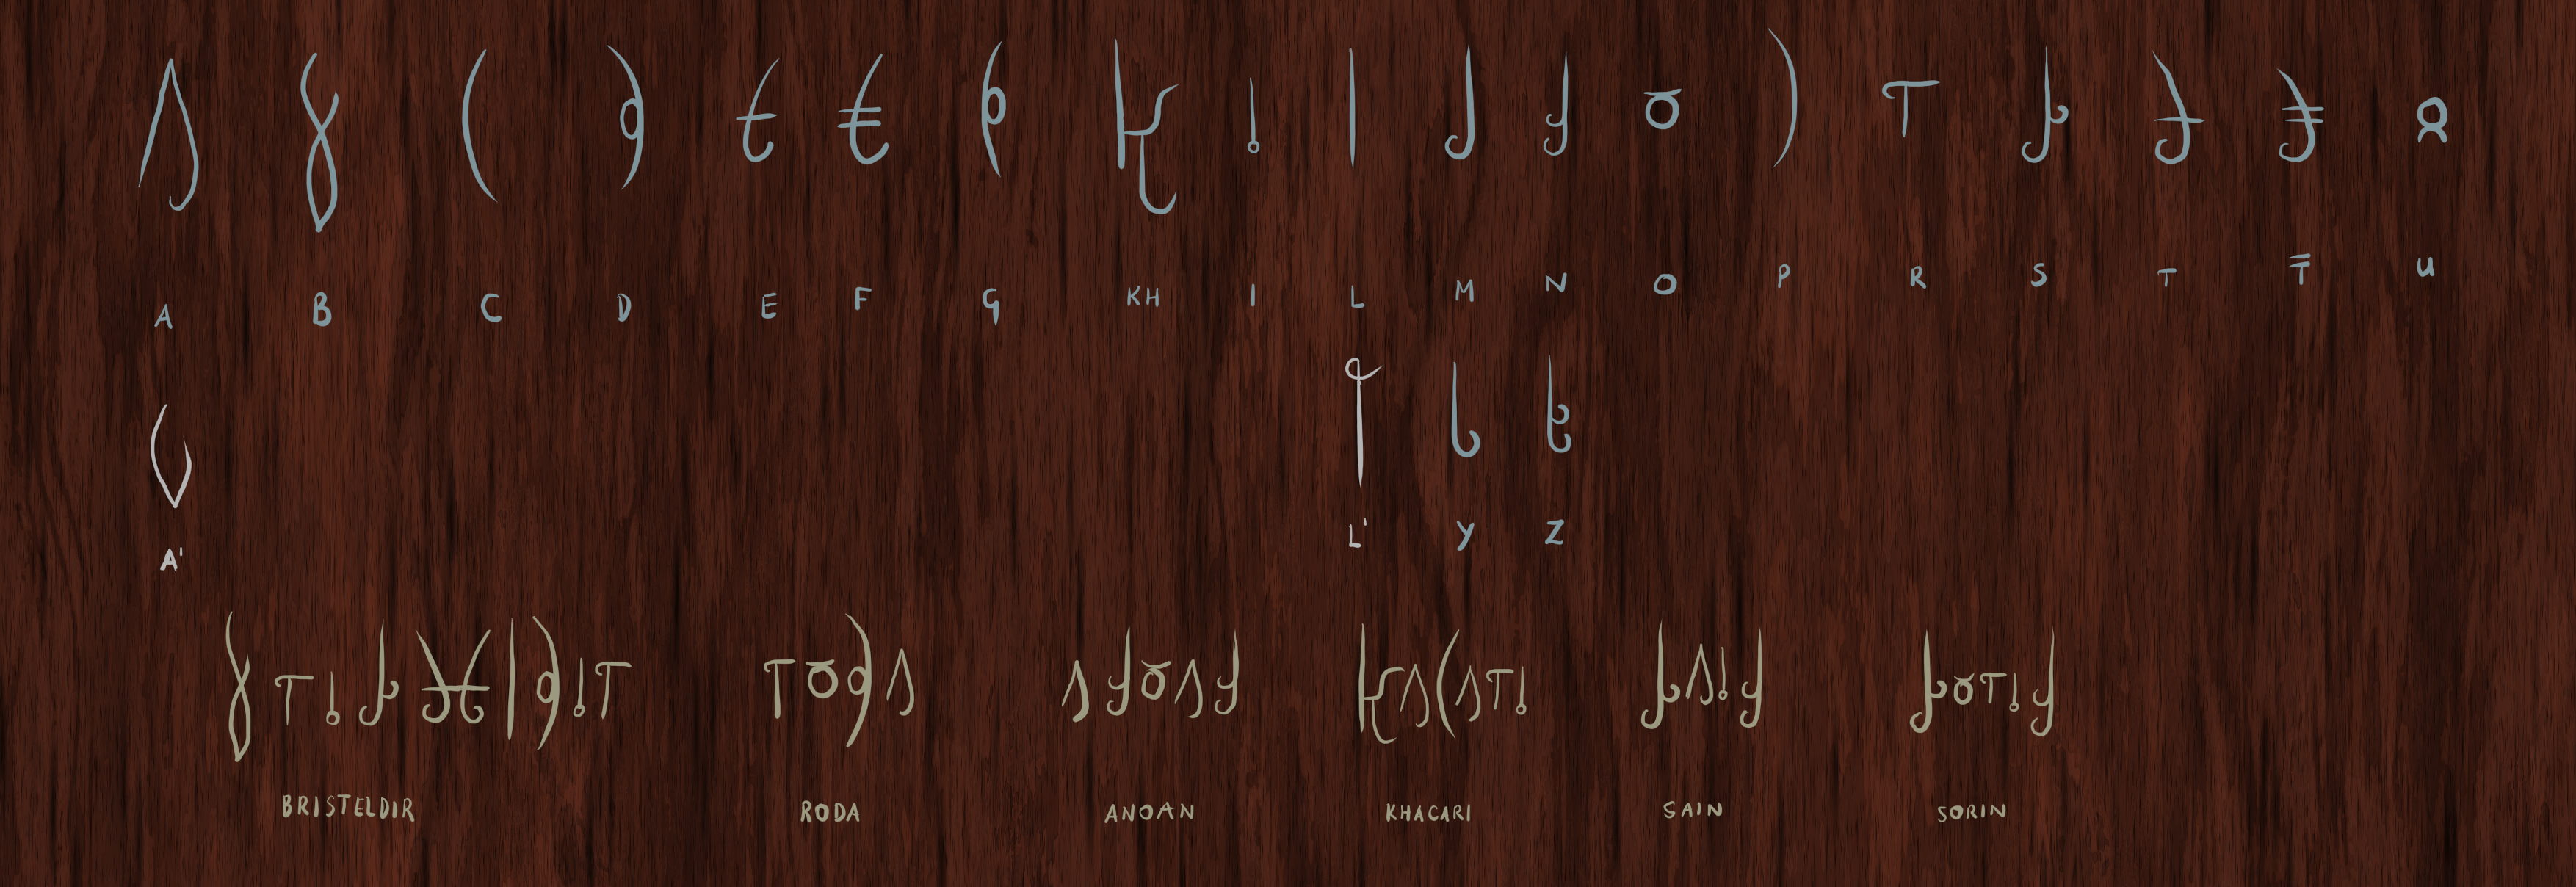 A B C D E F G KH I L M N O P R S T T̿ U
A' L' Y Z
BRISTELDIR RODA ANOAN KHACARI SAIN SORIN